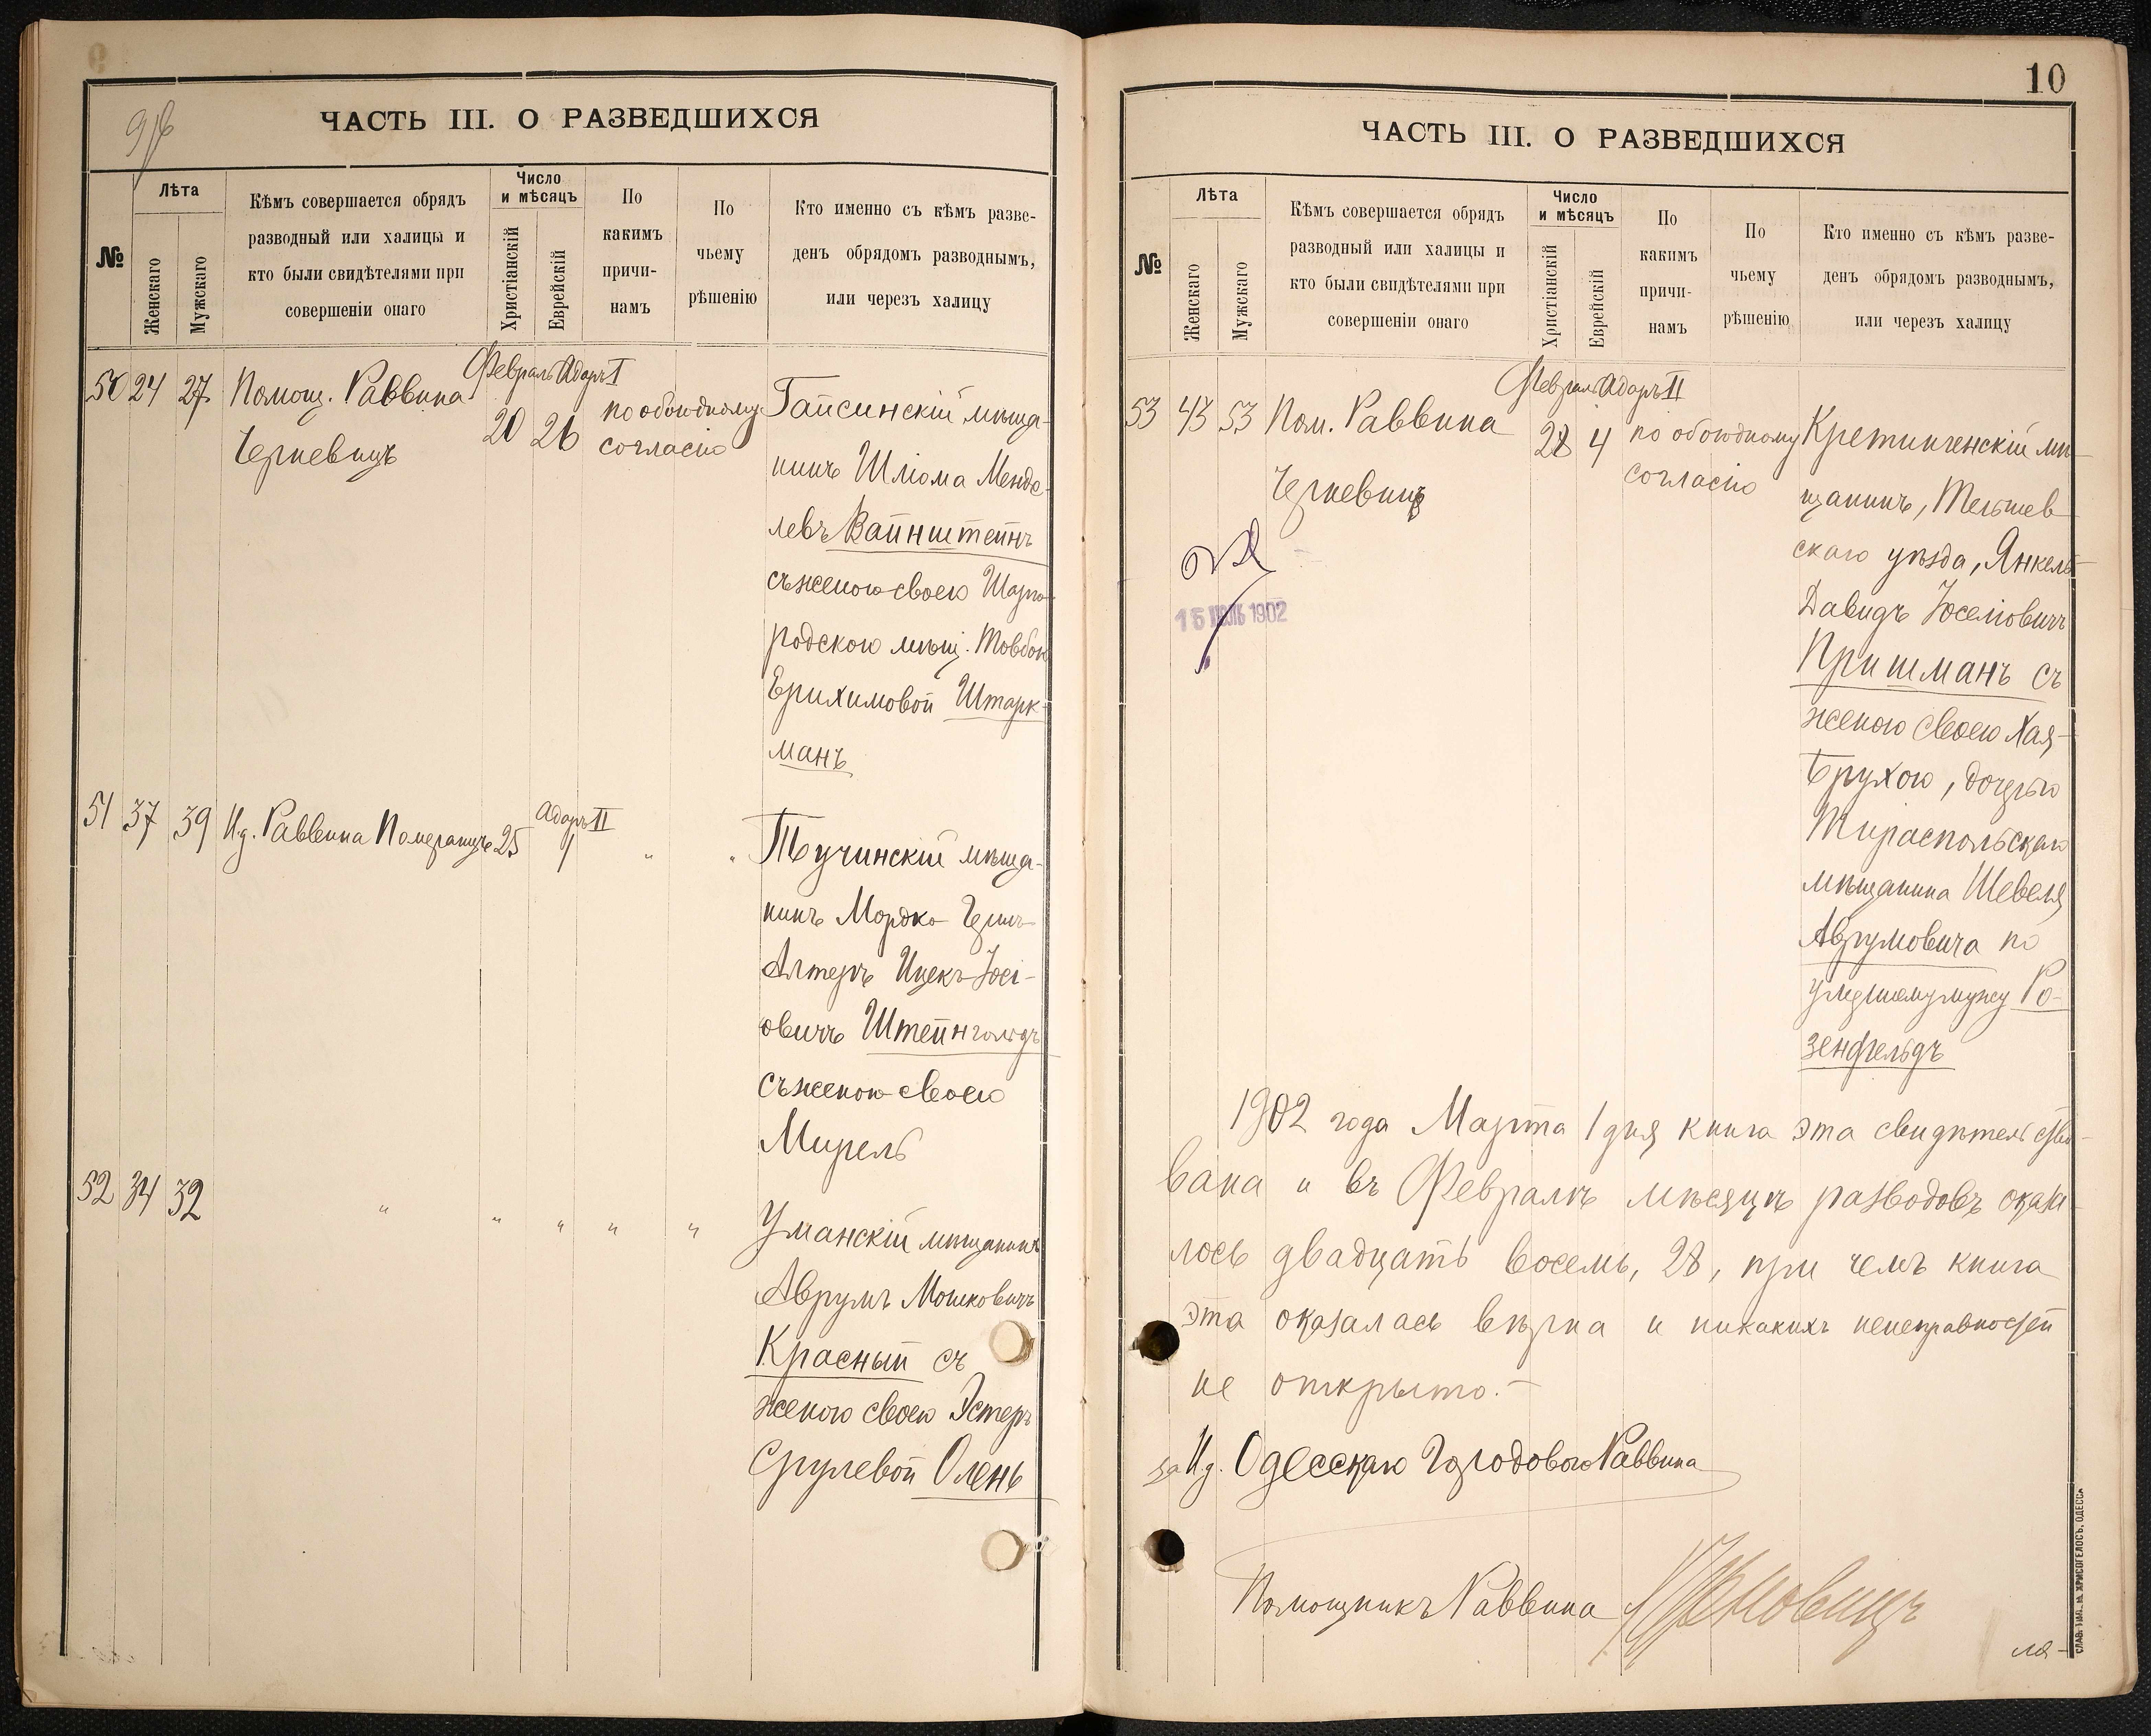 9
ЧАСТЬ III. О РАЗВЕДШИХСЯ
№
Лѣта
Женскаго
Мужскаго
Кѣмъ совершается обрядъ
разводный или халицы и
кто были свидѣтелями при
совершеніи онаго
Число
и мѣсяцъ
Христіанскій
Еврейскій
По
какимъ
причи-
намъ
По
чьему
рѣшенію
Кто именно съ кѣмъ разве-
денъ обрядомъ разводнымъ,
или черезъ халицу
50 24 27 Помощ. Раввина
Черновицъ
Февраль Адаръ I
20 26
по обоюдному
согласію
Гайсинскій мѣща-
нинъ Шлiома Менде-
левъ Вайнштейнъ
съ женою своею Шарго-
родскою мѣщ. Товбою
Ерихимовой Штарк-
манъ
51 37 39 И.д. Раввина Померанцъ 25
Адаръ II
1 " "
Тучинскій мѣща-
нинъ Мордко
Алтеръ Ицекъ-Іосі-
овичъ Штейнгольдъ
съ женою своею
Мирель
52 34 32 " " " " "
Уманскій мѣщанинъ
Аврумъ Мошковичъ
Красный съ
женою своею Эстеръ
Срулевой Олень
10
ЧАСТЬ III. О РАЗВЕДШИХСЯ
№
Лѣта
Женскаго
Мужскаго
Кѣмъ совершается обрядъ
разводный или халицы и
кто были свидѣтелями при
совершеніи онаго
Число
и мѣсяцъ
Христіанскій
Еврейскій
По
какимъ
причи-
намъ
По
чьему
рѣшенію
Кто именно съ кѣмъ разве-
денъ обрядомъ разводнымъ,
или черезъ халицу
53 43 53 Пом. Раввина
Черновицъ
Февраль Адаръ II
28 4
по обоюдному
согласію
15 1902
Кретингенскій мѣ-
щанинъ, Тельшев-
скаго уѣзда, Янкель
Давидъ Іоселіовичъ
Пришманъ съ
женою своею Хая-
Брухою, дочерью
Тираспольскаго
мѣщанина Шевеля
Аврумовича по
умершему мужу Ро-
зенфельдъ
1902 года Марта 1 дня книга эта свидѣтельство-
вана и въ Февралѣ мѣсяцѣ разводовъ оказа-
лось двадцать восемь, 28, при чемъ книга
эта оказалась вѣрна и никакихъ неисправностей
не открыто.-
за И.д. Одесскаго Городового Раввина
Помощникъ Раввина Черновицъ
СЛАВ. ТИП. М. ХРИСОГЕЛОСЪ, ОДЕССА